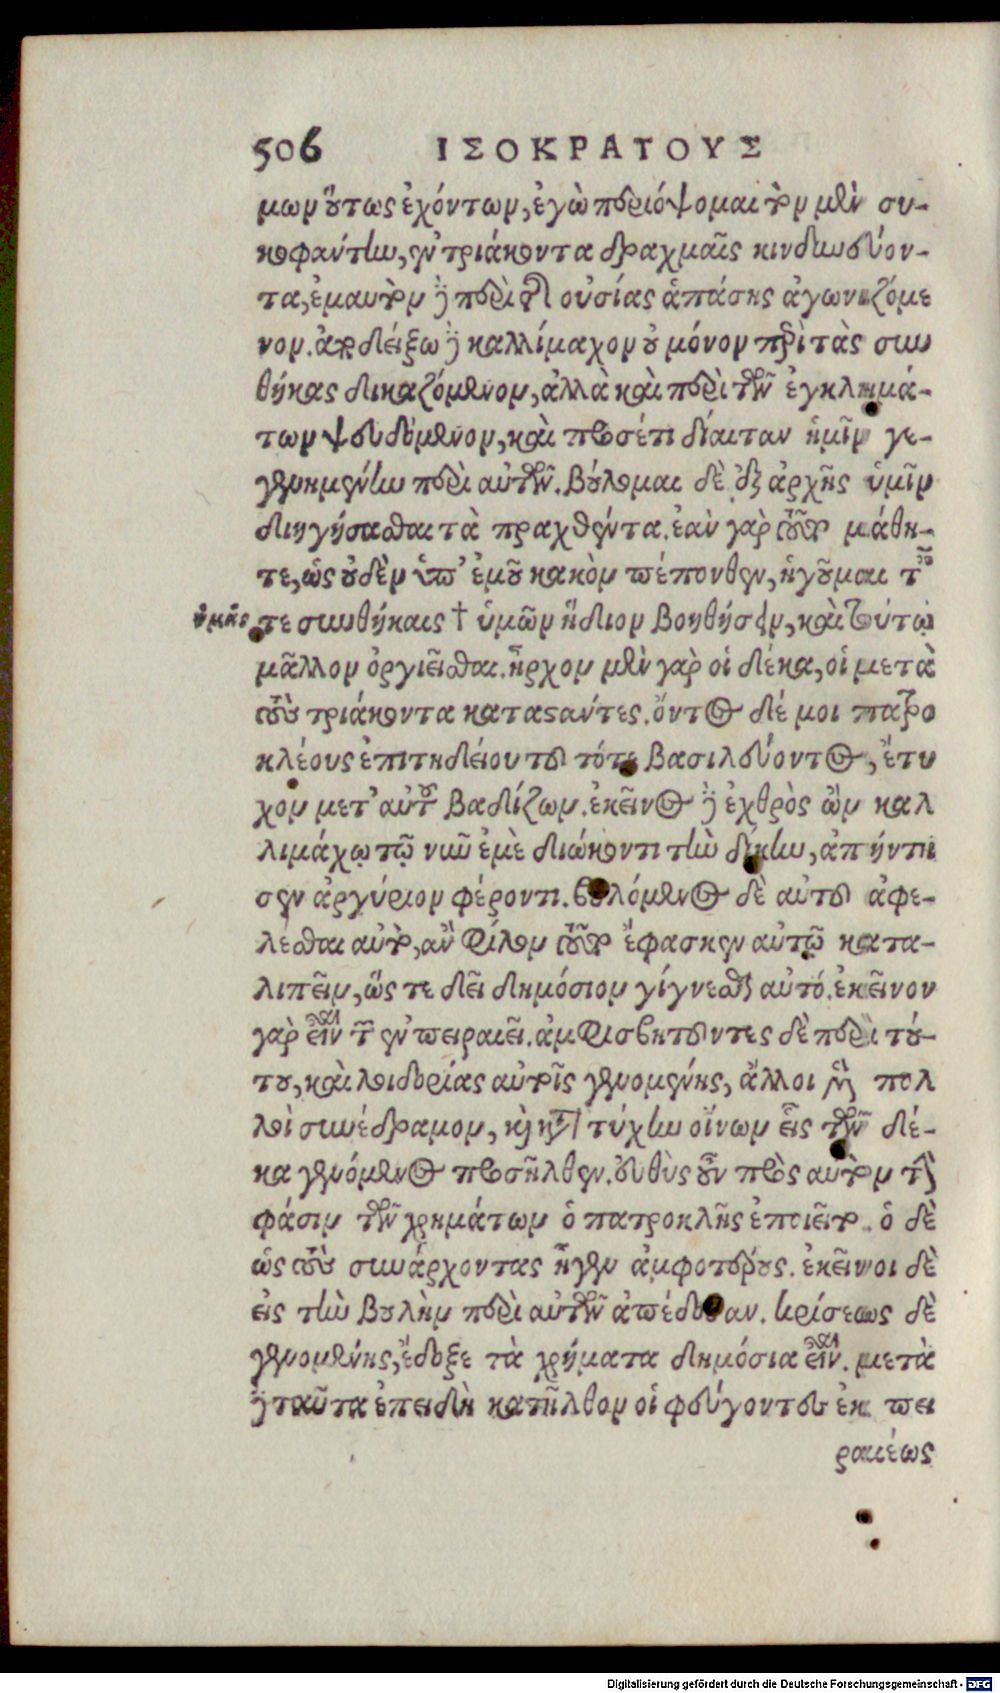 506 ΙΣΟΚΡΑΤΟΥΣ
μων οὕτως ἐχόντων, ἐγὼ περιόψομαι τὸν μὲν συ-
κοφάντην, ἐν τριάκοντα δραχμαῖς κινδυνεύον-
τα, ἐμαυτὸν δὲ περὶ τῆς οὐσίας ἁπάσης ἀγωνιζόμε
νον. ἀποδείξω δὲ καλλίμαχον οὐ μόνον παρὰ τὰς συν
θήκας δικαζόμενον, ἀλλὰ καὶ περὶ τῶν ἐγκλημά-
των ψευδόμενον, καὶ προσέτι δίαιταν ἡμῖν γε-
γενημένην περὶ αὐτῶν. βούλομαι δὲ ἐξ ἀρχῆς ὑμῖν
διηγήσασθαι τὰ πραχθέντα. ἐὰν γὰρ τοῦτο μάθη-
τε, ὡς οὐδὲν ὑπ' ἐμοῦ κακὸν πέπονθεν, ἡγοῦμαι ταῖς
ὑμᾶς τε συνθήκαις † ὑμῶν ἥδιον βοηθήσειν, καὶ τούτῳ
μᾶλλον ὀργιεῖσθαι. ἦρχον μὲν γὰρ οἱ δέκα, οἱ μετὰ
τοὺς τριάκοντα καταστάντες. ὄντος δέ μοι πατρο
κλέους ἐπιτηδείου τοῦ τότε βασιλεύοντος, ἔτυ
χον μετ' αὐτοῦ βαδίζων. ἐκεῖνος δὲ ἐχθρὸς ὢν καλ
λιμάχῳ τῷ νῦν ἐμὲ διώκοντι τὴν δίκην, ἀπήντη
σεν ἀργύριον φέροντι. βουλόμενος δὲ αὐτοῦ ἀφε-
λέσθαι αὐτὸ, ἂν φίλων τοῦτο ἔφασκεν αὐτῷ κατα-
λιπεῖν, ὥς τε δεῖ δημόσιον γίγνεσθαι αὐτό. ἐκεῖνον
γὰρ εἶναι τῶν ἐν πειραιεῖ. ἀμφισβητοῦντες δὲ περὶ τού-
του, καὶ λοιδορίας αὐτοῖς γενομένης, ἄλλοι τε πολ
λοὶ συνέδραμον, καὶ κατὰ τύχην οἴνων εἷς τῶν δέ-
κα γενόμενος προσῆλθεν. εὐθὺς οὖν πρὸς αὐτὸν τὴν
φάσιν τῶν χρημάτων ὁ πατροκλῆς ἐποιεῖτο. ὁ δὲ
ὡς τοὺς συνάρχοντας ἦγεν ἀμφοτέρους. ἐκεῖνοι δὲ
εἰς τὴν βουλὴν περὶ αὐτῶν ἀπέδοσαν. κρίσεως δὲ
γενομένης, ἔδοξε τὰ χρήματα δημόσια εἶναι. μετὰ
δὲ ταῦτα ἐπειδὴ κατῆλθον οἱ φεύγοντες ἐκ πει
ραιέως
Digitalisierung gefördert durch die Deutsche Forschungsgemeinschaft - DFG